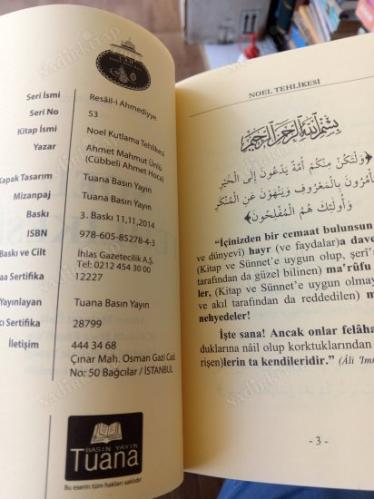 Seri İsmi Resâil-i Ahmediyye
Seri No 53
Kitap İsmi Noel Kutlama Tehlikesi
Yazar Ahmet Mahmut Ünlü
(Cübbeli Ahmet Hoca)
Kapak Tasarım Tuana Basın Yayın
Mizanpaj Tuana Basın Yayın
Baskı 3. Baskı 11,11,2014
ISBN 978-605-85278-4-3
Baskı ve Cilt İhlas Gazetecilik A.Ş.
Tel:0212 454 30 00
aa Sertifika 12227
Yayınlayan Tuana Basın Yayın
cı Sertifika 28799
İletişim 444 34 68
Çınar Mah. Osman Gazi Cad.
No: 50 Bağcılar / İSTANBUL
BASIN YAYIN
Tuana
Bu eserin tüm hakları saklıdır.
NOEL TEHLİKESİ
بِسْمِ اللهِ الرَّحْمٰنِ الرَّحِيمِ
﴿وَلْتَكُنْ مِنْكُمْ أُمَّةٌ يَدْعُونَ إِلَى الْخَيْرِ
أْمُرُونَ بِالْمَعْرُوفِ وَيَنْهَوْنَ عَنِ الْمُنْكَرِ
وَأُولٰئِكَ هُمُ الْمُفْلِحُونَ﴾
"İçinizden bir cemaat bulunsun
ve dünyevî) hayr (ve faydalar)a dave
(Kitap ve Sünnet'e uygun olup, şerî'
tarafından da güzel bilinen) ma'rûfu
ler, (Kitap ve Sünnet'e uygun olmay
ve akıl tarafından da reddedilen) m
nehyederler!
İşte sana! Ancak onlar felâha
duklarına nâil olup korktuklarından
rişen)lerin ta kendileridir." (Âli 'İm
- 3 -